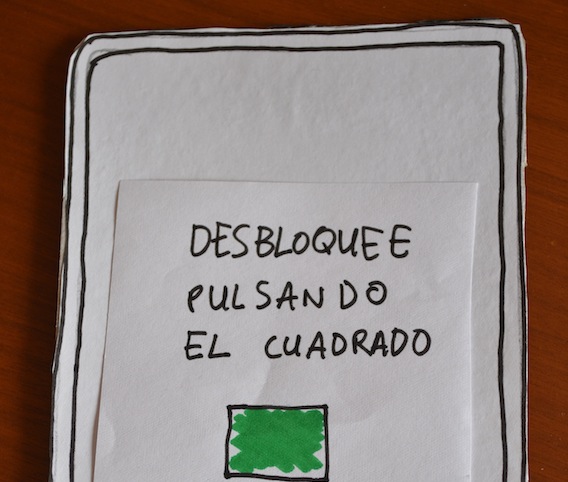 DESBLOQUEE
PULSANDO
EL CUADRADO